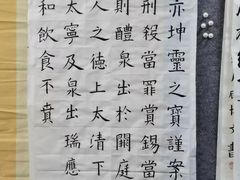 亦坤靈之寶謹案
刑殺當罪賞錫當
則醴泉出於闕庭
人之德上太清下
太寧及泉出瑞應
和飲食不賁